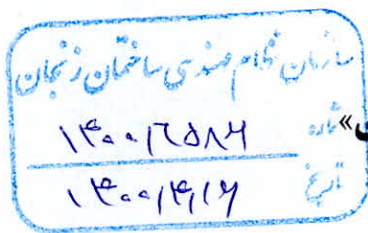 سازمان نظام مهندسی ساختمان زنجان
شماره ۱۴۰۰/۲۵۸۶ »
تاریخ ۱۴۰۰/۴/۱۶